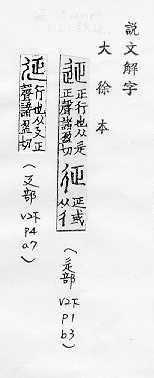 説文解字
大徐本
正行也从辵
正聲諸盈切
正或
从彳
(辵部 V2下 p1 b3)
行也从廴正
聲諸盈切
(廴部 V2下 p4 a7)